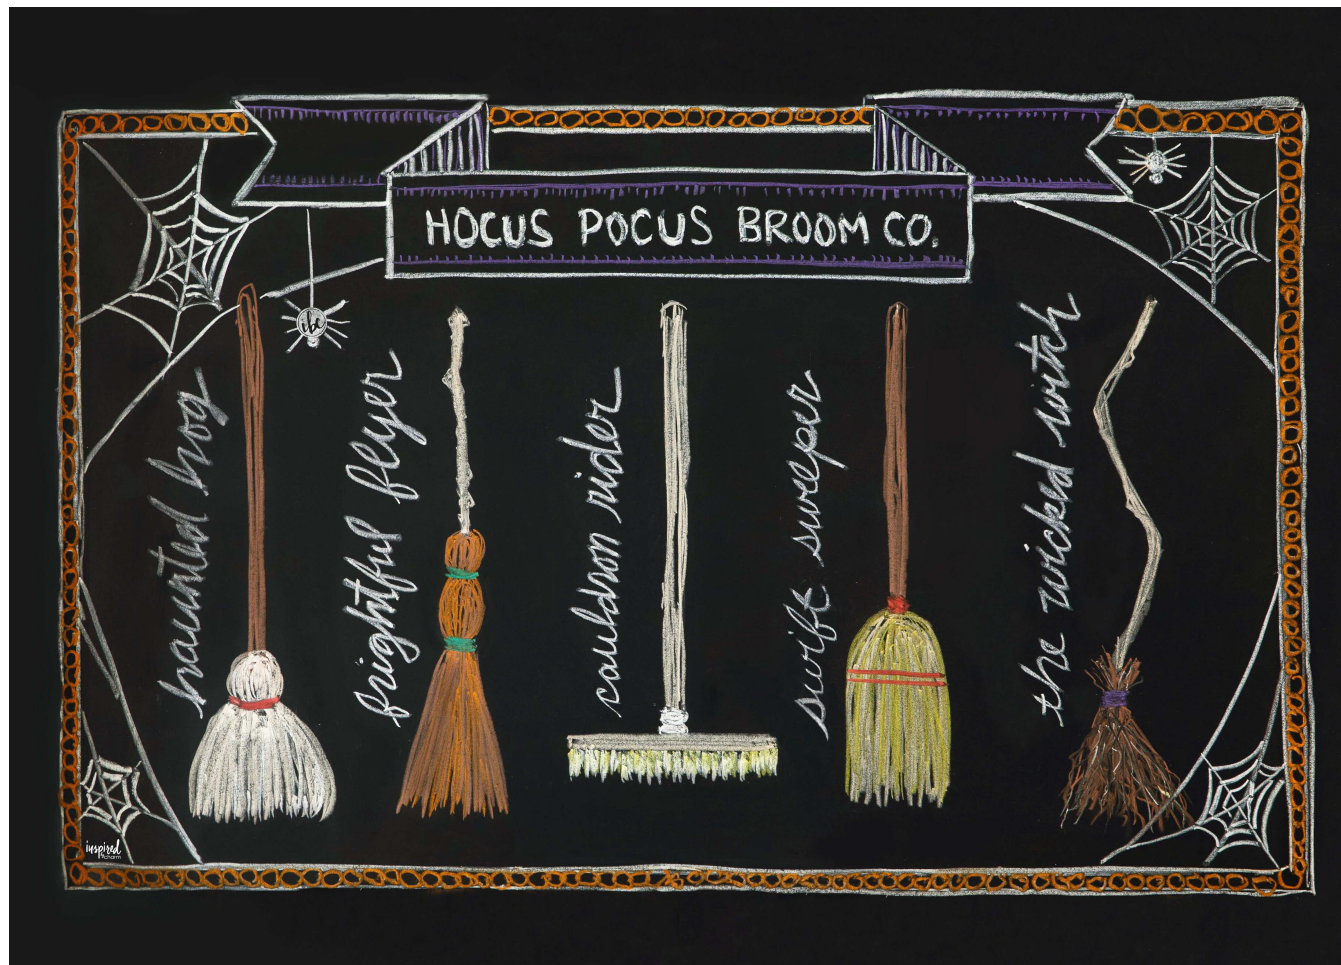 HOCUS POCUS BROOM CO.
ibc
haunted hog
frightful flyer
cauldron rider
swift sweeper
the wicked witch
inspired
by charm